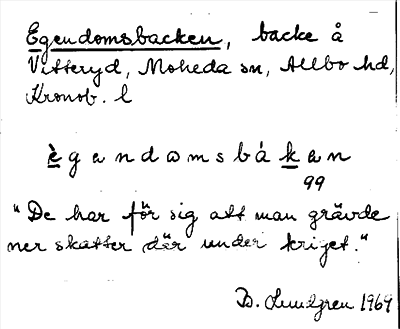 Egendomsbacken, backe å
Vitteryd, Moheda sn, Allbo hd,
Kronob. l
è g a n d ω m s b á k a n
99
"De har för sig att man grävde
ner skatter där under kriget."
B. Lundgren 1964